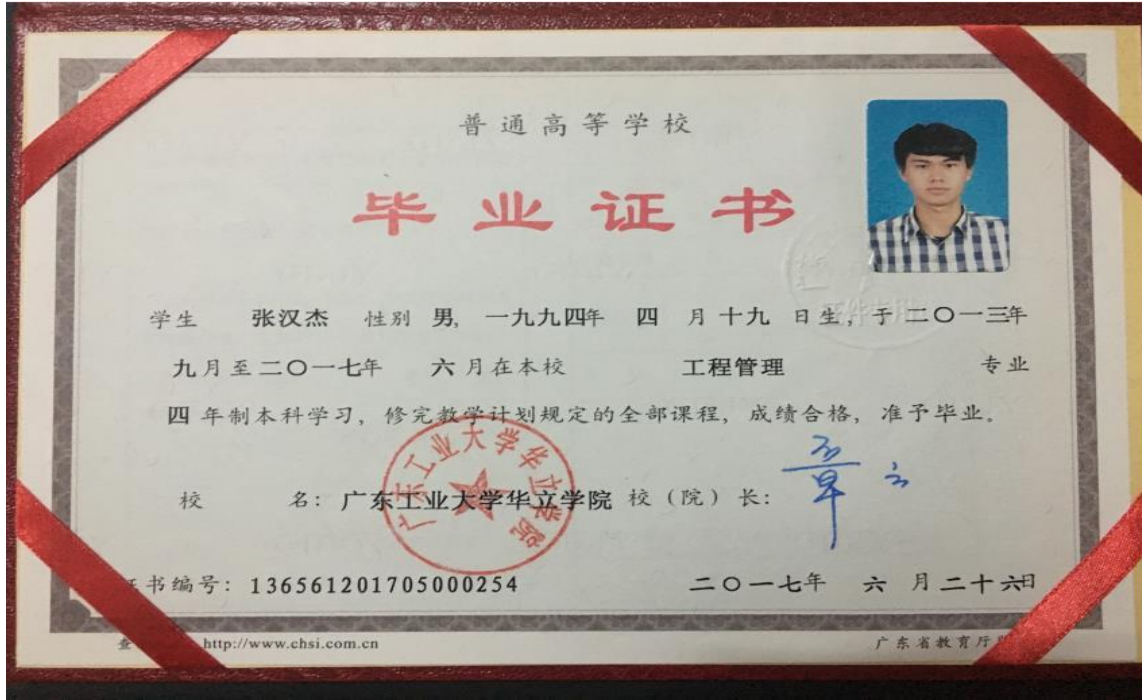 普通高等学校
毕业证书
学生 张汉杰 性别 男, 一九九四年 四 月十九 日生, 于二〇一三年
九月至二〇一七年 六月在本校 工程管理 专业
四 年制本科学习, 修完教学计划规定的全部课程, 成绩合格, 准予毕业。
校 名: 广东工业大学华立学院 校（院）长:
广东工业大学华立学院
书编号: 136561201705000254 二〇一七年 六 月二十六日
查 http://www.chsi.com.cn 广东省教育厅